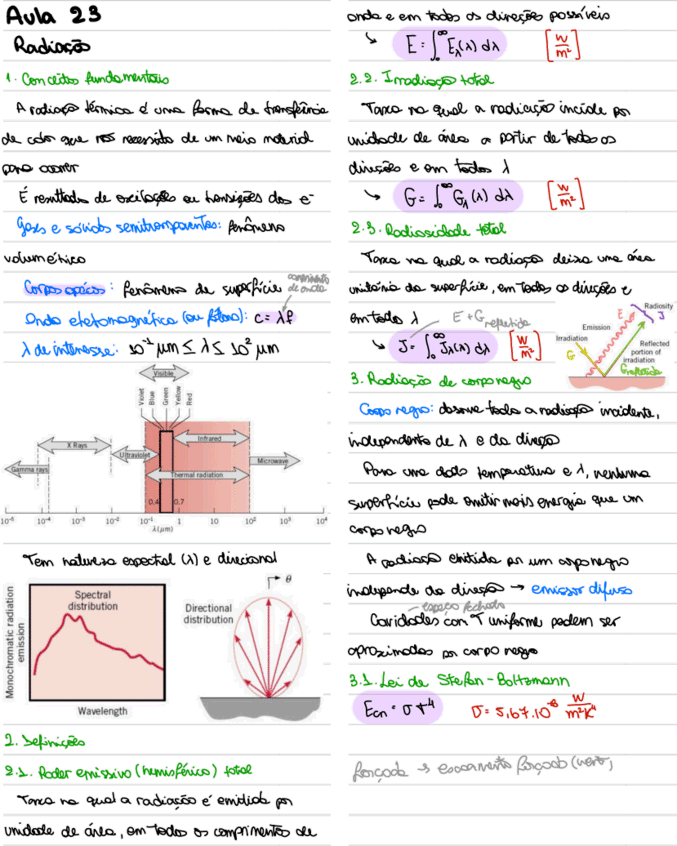 Aula 23
Radiação
1. Conceitos fundamentais
A radiação térmica é uma forma de transferência
de calor que não necessita de um meio material
para ocorrer
É resultado de oscilações ou transições dos e⁻
Gases e sólidos semitransparentes: fenômeno
volumétrico
Corpos opacos: fenômeno de superfície
comprimento de onda
Onda eletromagnética (ou fótons): c = λf
λ de interesse: 10⁻¹ μm ≤ λ ≤ 10² μm
Visible
Violet
Blue
Green
Yellow
Red
X Rays
Infrared
Ultraviolet
Microwave
Gamma rays
Thermal radiation
0.4
0.7
10⁻⁵ 10⁻⁴ 10⁻³ 10⁻² 10⁻¹ 1 10 10² 10³ 10⁴
λ(μm)
Tem natureza espectral (λ) e direcional
Spectral
distribution
Monochromatic radiation
emission
Wavelength
θ
Directional
distribution
2. Definições
2.1. Poder emissivo (hemisférico) total
Taxa na qual a radiação é emitida por
unidade de área, em todos os comprimentos de
onda e em todas as direções possíveis
↳ E = ∫₀^∞ E_λ(λ) dλ [W/m²]
2.2. Irradiação total
Taxa na qual a radiação incide por
unidade de área a partir de todas as
direções e em todos λ
↳ G = ∫₀^∞ G_λ(λ) dλ [W/m²]
2.3. Radiosidade total
Taxa na qual a radiação deixa uma área
unitária da superfície, em todas as direções e
em todo λ
E + G refletida
↳ J = ∫₀^∞ J_λ(λ) dλ [W/m²]
Radiosity
J
E
Emission
Irradiation
G
Reflected
portion of
irradiation
G refletida
3. Radiação de corpo negro
Corpo negro: absorve toda a radiação incidente,
independente de λ e da direção
Para uma dada temperatura e λ, nenhuma
superfície pode emitir mais energia que um
corpo negro
A radiação emitida por um corpo negro
independe da direção → emissor difuso
espaço fechado
Cavidades com T uniforme podem ser
aproximadas por corpo negro
3.1. Lei de Stefan-Boltzmann
E_cn = σT⁴ σ = 5,67.10⁻⁸ W/m²K⁴
forçada → escoamento forçado (vent,